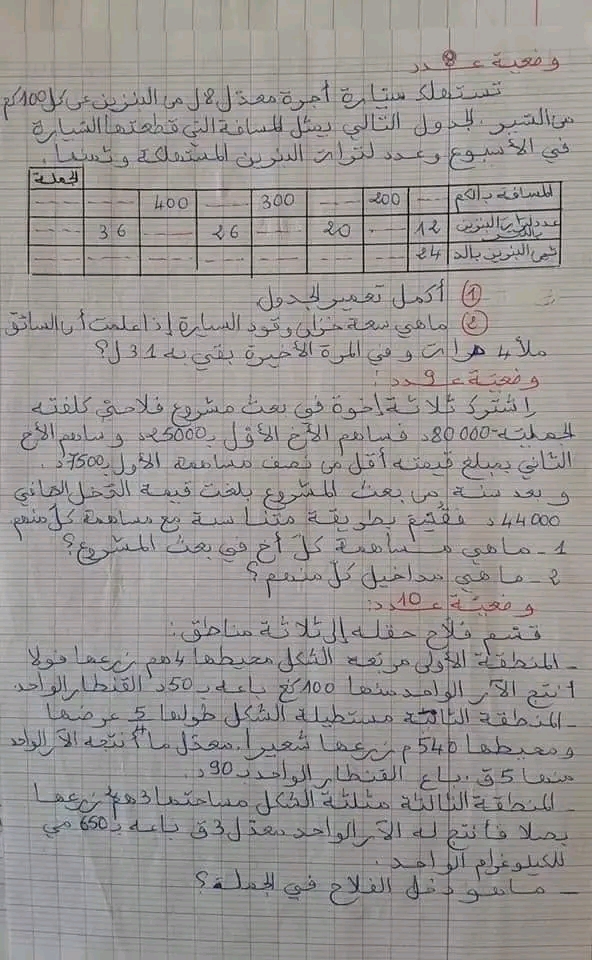 وضعية عــدد 8
تستهلك سيارة أجرة معدل 8 ل من البنزين عن كل 100 كم
من السير. الجدول التالي يمثل المسافة التي قطعتها السيارة
في الأسبوع وعدد لترات البنزين المستهلكة وثمنها.
الجملة
المسافة بالكم --- 200 --- 300 --- 400 --- ---
عدد لترات البنزين 12 --- 20 --- 26 --- 36 ---
ثمن البنزين بالد 24 --- --- --- --- --- --- ---
① أكمل تعمير الجدول
② ماهي سعة خزان وقود السيارة إذا علمت أن السائق
ملأه 4 مرات و في المرة الأخيرة بقي به 31 ل؟
وضعية عــدد 9:
اشترك ثلاثة إخوة في بعث مشروع فلاحي كلفته
الجملية 80000د فساهم الأخ الأول بـ 25000د و ساهم الأخ
الثاني بمبلغ قيمته أقل من نصف مساهمة الأول بـ 7500د.
و بعد سنة من بعث المشروع بلغت قيمة الدخل الصافي
44000د فقسم بطريقة متناسبة مع مساهمة كل منهم
1 - ماهي مساهمة كل أخ في بعث المشروع؟
2 - ماهي مداخيل كل منهم؟
وضعية عــدد 10:
قسم فلاح حقله إلى ثلاثة مناطق:
- المنطقة الأولى مربعة الشكل محيطها 4هم زرعها فولا
أنتج الآر الواحد منها 100كغ باعه بـ 50د القنطار الواحد.
- المنطقة الثانية مستطيلة الشكل طولها 5 عرضها
ومحيطها 540م زرعها شعيرا. معدل ما أنتجه الآر الواحد
منها 5ق. باع القنطار الواحد بـ 90د.
- المنطقة الثالثة مثلثة الشكل مساحتها 3هم² زرعها
بصلا فأنتج له الآر الواحد معدل 3ق باعه بـ 650 مي
للكيلوغرام الواحد.
- ماهو دخل الفلاح في الجملة؟